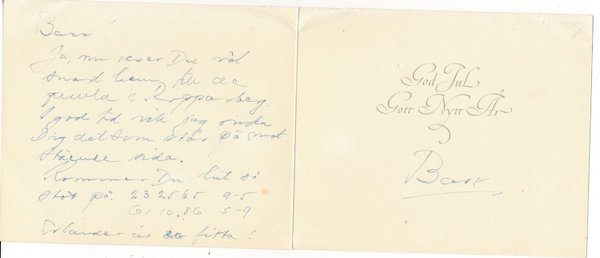 Bassi
Ja, nu reser Du väl
snart hem till de
gamla i Kopparberg.
I god tid vill jag önska
Dig det som står på mot-
stående sida.
Kommer Du hit så
stöt på. 23 25 65 9-5
61 10.86 5-9
Erlander är en fitta!
God Jul
Gott Nytt År